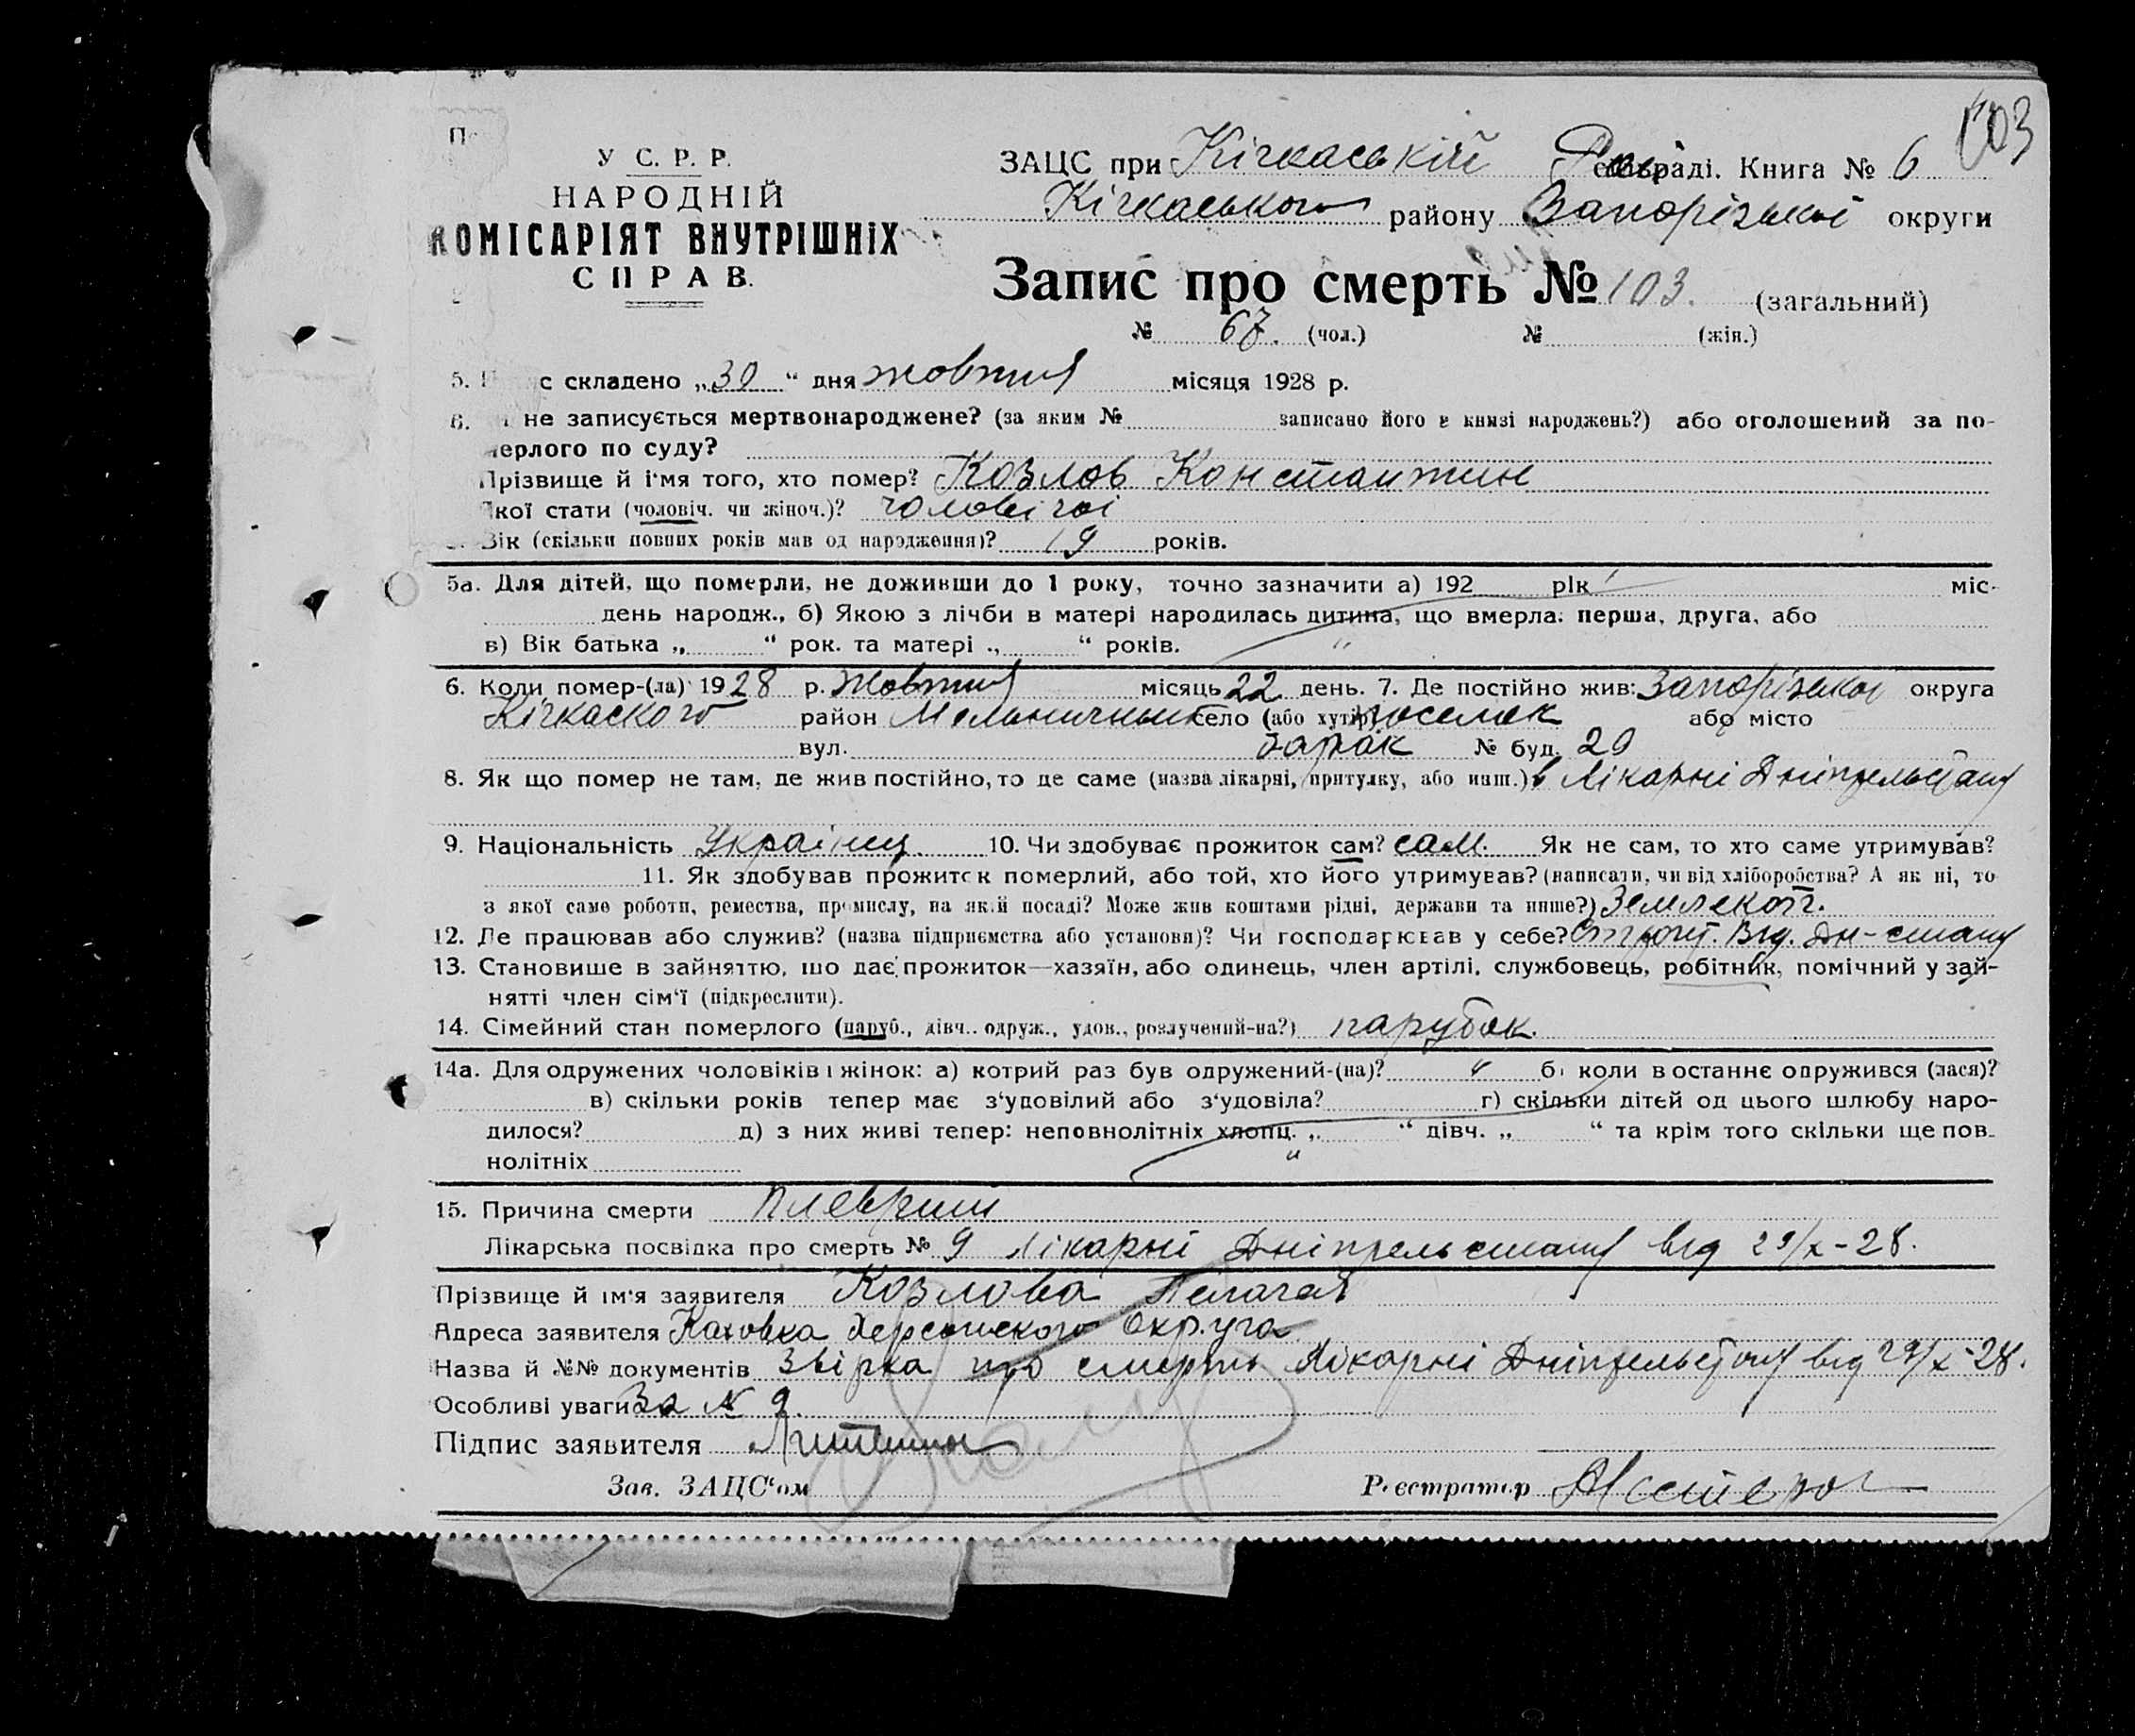 103
У С. Р. Р.
НАРОДНІЙ
КОМІСАРІЯТ ВНУТРІШНІХ
СПРАВ.
ЗАЦС при Кічкаській Рай раді. Книга № 6
Кічкаського району Запорізької округи
Запис про смерть № 103. (загальний)
№ 67. (чол.) № (жін.)
5. с складено „30“ дня жовтня місяця 1928 р.
6. не записується мертвонароджене? (за яким № записано його в книзі народжень?) або оголошений за по-
мерлого по суду?
Прізвище й і'мя того, хто помер? Козлов Константин
Якої стати (чоловіч. чи жіноч.)? чоловічої
Вік (скільки повних років мав од народження)? 19 років.
5а. Для дітей, що померли, не доживши до 1 року, точно зазначити а) 192 рік міс-
день народж., б) Якою з лічби в матері народилась дитина, що вмерла: перша, друга, або
в) Вік батька „ “ рок. та матері „ “ років.
6. Коли помер-(ла) 1928 р. Жовтня місяць 22 день. 7. Де постійно жив: Запорізької округа
Кічкаского район Мельничный село (або хутір) поселок або місто
вул. барак № буд. 20
8. Як що помер не там, де жив постійно, то де саме (назва лікарні, притулку, або инш.) в Лікарні Дніпрельстану
9. Національність Українец. 10. Чи здобуває прожиток сам? сам. Як не сам, то хто саме утримував?
11. Як здобував прожиток померлий, або той, хто його утримував? (написати, чи від хліборобства? А як ні, то
з якої саме роботи, ремества, промислу, на якій посаді? Може жив коштами рідні, держави та инше?) Землекоп.
12. Де працював або служив? (назва підприємства або установи)? Чи господарював у себе? Від. Дн-стану
13. Становище в зайняттю, що дає прожиток—хазяїн, або одинець, член артілі, службовець, робітник, помічний у зай-
нятті член сім'ї (підкреслити).
14. Сімейний стан померлого (паруб., дівч., одруж., удов., розлучений-на?) парубок.
14а. Для одружених чоловіків і жінок: а) котрий раз був одружений-(на)? б) коли в останнє одружився (лася)?
в) скільки років тепер має з'удовілий або з'удовіла? г) скільки дітей од цього шлюбу наро-
дилося? д) з них живі тепер: неповнолітніх хлопц. „ “ дівч. „ “ та крім того скільки ще пов-
нолітніх
15. Причина смерти плеврит
Лікарська посвідка про смерть № 9 лікарні Дніпрельстану від 29/X-28.
Прізвище й ім'я заявителя Козлова Пелагея
Адреса заявителя Каховка Херсонского Округа
Назва й №№ документів Звірка про смерть Лікарні Дніпрельстану від 29/X-28.
Особливі уваги За № 9.
Підпис заявителя
Зав. ЗАЦС'ом Реєстратор